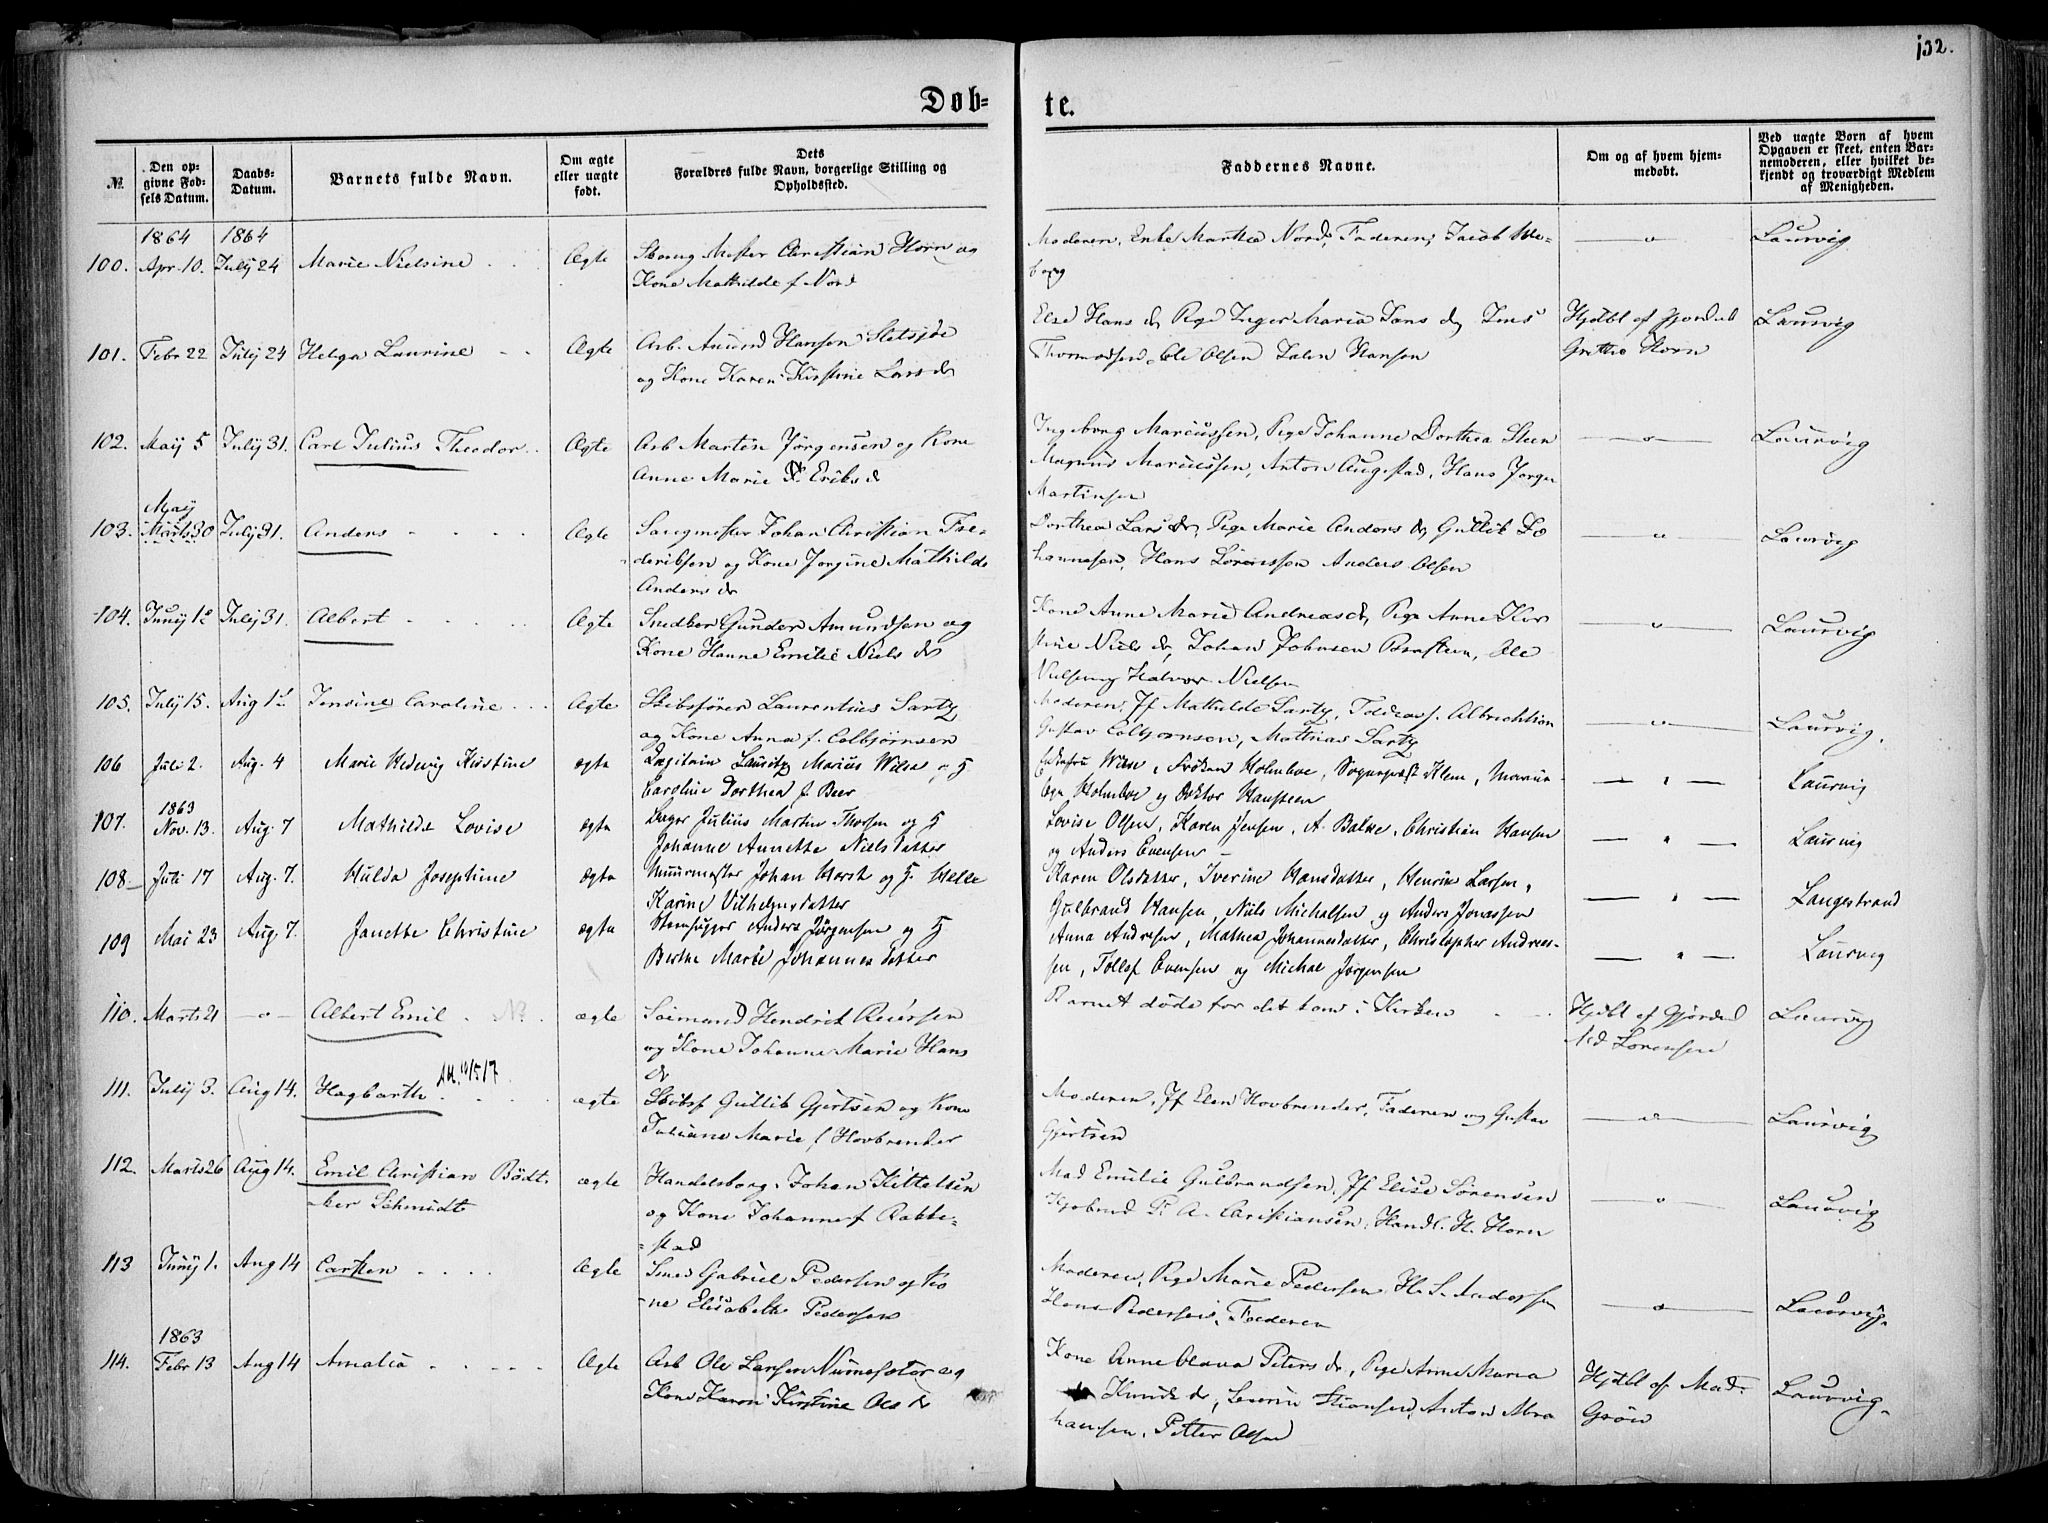 132.
Døb-
te.
№
Den op-
givne Fød-
sels Datum.
Daabs-
Datum.
Barnets fulde Navn.
Om ægte
eller uægte
født.
Dets
Forældres fulde Navn, borgerlige Stilling og
Opholdssted.
Faddernes Navne.
Om og af hvem hjem-
medøbt.
Ved uægte Børn af hvem
Opgaven er skeet, enten Bar-
nemoderen, eller hvilket be-
kjendt og troværdigt Medlem
af Menigheden.
1864 1864
100. Apr. 10. July 24 Marie Nielsine Ægte
Mester Christian Horn og
Kone Mathilde f Nord
Moderen, Enke Marthe Nord, Faderen, Jacob
Laurvig
101. Febr 22 July 24 Helga Laurine Ægte
Arb. Amund Hansen
og Kone Karen Kirstine Lars dr
Else Hans dr Pige Inger Maria Jans dr Jens
Thormodsen, Ole Olsen Hansen
Hjdbt af
Grethe Horn
Laurvig
102. May 5 July 31. Carl Julius Theodor Ægte
Arb Martin Jørgensen og Kone
Anne Marie Eriks dr
Ingeborg Marcussen, Pige Johanne Dorthea Steen
Magnus Marcussen, Anton Augestad, Hans Jørgen
Martinsen
Laurvig
May
103. Marts 30 July 31. Anders Ægte
Johan Christian Fre-
deriksen og Kone Jørgine Mathilde
Anders dr
Dorthea Lars dr, Pige Marie Anders dr, Gullik Jo
hannesen, Hans Sørensen Anders Olsen
Laurvig
104. Juny 12 July 31. Albert Ægte
Snedker Gunder Amundsen og
Kone Hanne Emilie Niels dr
Kone Anne Marie Andreas dr, Pige Anne Kir
stine Niels dr, Johan Johnsen Ole
Halvor Nielsen
Laurvig
105. July 15. Aug 1 Jensine Caroline Ægte
Skibsfører Laurentius Sartz
og Kone Anna f. Colbjørnsen
Moderen, Jf Mathilde Sartz,
Gustav Colbjørnsen, Mathias Sartz
Laurvig.
106 Juli 2. Aug. 4 Marie Hedevig Kirstine ægte
Capitain Lauritz Marius Wilse og H
Caroline Dorthea f. Beer
Wilse, Frøken Holmboe, Sogneprest Klem,
Holmboe og Doktor Hansteen
Laurvig
1863
107. Nov. 13. Aug. 7 Mathilde Lovise ægte
Bager Julius Martin Thorsen og H
Johanne Annette Nielsdatter
Lovise Olsen, Karen Jensen, A. Balke, Christian Hansen
og Anders Evensen
Laurvig
108 Juli 17 Aug. 7. Hulda Josephine ægte
Muurmester Johan Horst og H. Helle
Karine Vilhelmsdatter
Karen Olsdatter, Iverine Hansdatter, Henrik Larsen,
Gulbrand Hansen, Niels Michelsen og Anders Jonassen
Langestrand
109 Mai 23 Aug. 7. Janette Christine ægte
Steenhugger Anders Jørgensen og H
Berthe Marie Johannesdatter
Anna Andresen, Mathea Johannesdatter, Christopher Andreas-
sen, Tollef Evensen og Michal Jørgensen
Laurvig
110. Marts 21 Albert Emil ægte
Sømand Hendrik Reiersen
og Kone Johanne Marie Hans
dr
Barnet døde før det kom i Kirken
Hjdbt af Gjordm
Md Sørensen
Laurvig
111. July 3. Aug 14. Hagbarth Att. 10/5 17. ægte
Skibsf Gullik Gjertsen og Kone
Juliane Marie f Hovbrender
Moderen, Jf Elen Hovbrender, Faderen og Gustav
Gjertsen
Laurvig
112. Marts 26 Aug 14. Emil Christian Bödt-
ker Schmidt ægte
Handelsborg. Johan Kittelsen
og Kone Johanne f Rakke-
stad
Mad Emilie Gulbrandsen, Jf Elise Sørensen
Kjøbmd P. A. Christiansen, Handl. H. Horn
Laurvig
113 Juny 1. Aug 14 Carsten Ægte
Smed Gabriel Pedersen og Ko
ne Elisabeth Pedersen
Moderen, Pige Marie Pedersen, H. S. Andersen
Hans Pedersen, Faderen
Laurvig.
1863
114. Febr 13 Aug 14 Amalia Ægte
Arb Ole Larsen og
Kone Karen Kirstine Ols dr
Kone Anne Olava Peters dr, Pige Anne Maria
Knuds dr, Severin Stiansen, Anton Abra
hamsen, Petter Olsen
Hjdbt af Mad.
Grøn
Laurvig.